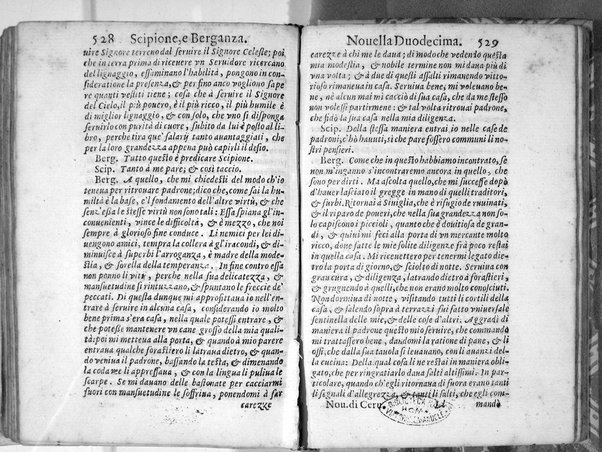 528 Scipione, e Berganza.
uire Signore terreno dal seruire il Signore Celeste; poi
che in terra prima di riceuere vn Seruidore ricercano
del lignaggio, essiminano l'habilità, pongono in con-
sideratione la presenza, & per fino anco vogliono sape
re quanti vestiti tiene; cosa che à seruire il Signore
del Cielo, il più pouero, è il più ricco, il più humile è
di miglior lignaggio, & con solo, che vno si disponga
seruirlo con purità di cuore, subito da lui è posto al li-
bro, perche tira que' salarij tanto auantaggiati, che
per la loro grandezza appena può capirli il desio.
Berg. Tutto questo è predicare Scipione.
Scip. Tanto à me pare; & così taccio.
Berg. A quello, che mi chiedesti del modo ch'io
teneua per ritrouare padrone; dico che, come sai la hu-
miltà è la base, e'l fondamento dell'altre virtù, & che
senz'essa le stesse virtù non sono tali: Essa spiana gl'in-
conuenienti, vince le difficoltà, & è mezzo, che noi
sempre à glorioso fine condente. Li nemici per lei di-
uengono amici, tempra la collera à gl'iracondi, & di-
minuisce à superbi l'arroganza, è madre della mode-
stia, & sorella della temperanza. In fine contro essa
non ponno i vitij, perche nella sua delicatezza, &
mansuetudine si rintuzzano, & spuntano le freccie de'
peccati. Di questa dunque mi approfittaua io nell'en-
trare à seruire in alcuna casa, considerando io molto
bene prima s'era casa, nella quale potessi entrare, &
che potesse mantenere vn cane grosso della mia quali-
tà; poi mi metteua alla porta, & quando à mio parere
entraua qualche forastiero li latraua dietro, & quan-
do veniua il padrone, bassando la testa, & dimenando
la coda me li appressaua, & con la lingua li puliua le
scarpe. Se mi dauano delle bastonate per cacciarmi
fuori con mansuetudine le soffriua, ponendomi à far
carezze
Nouella Duodecima. 529
carezze à chi me le daua; di modo che vedendo questa
mia modestia, & nobile termine non mi daua più di
vna volta; & à due di questi assalti rimanendo vitto-
rioso rimaneua in casa. Seruiua bene; mi voleuano be-
ne, nè alcun mai mi cacciò di sua casa, che da me stesso
non volessi partirmene: & tal volta ritrouai padrone,
che fidò la sua casa nella mia diligenza.
Scip. Della stessa maniera entrai io nelle case de
padroni, c'hò hauuti, si che pare fossero communi li no-
stri pensieri.
Berg. Come che in questo habbiamo incontrato, se
non m'inganno s'incontraremo ancora in quello, che
sono per dirti. Ma ascolta quello, che mi successe dopò
d'hauer lasciato il gregge in mano di quelli traditori,
& furbi. Ritornai à Siuiglia, che è rifugio de rouinati,
& il riparo de poueri, che nella sua grandezza non so-
lo capiscono i piccioli, quanto che è douitiosa de gran-
di, & quini mi feci alla porta di vn mercante molto
ricco, doue fatte le mie solite diligenze frà poco restai
in quella casa. Mi riceuettero per tenermi legato die-
tro la porta di giorno, & sciolto di notte. Seruiua con
gran cura, & diligenza, latrando dietro à forastieri,
& grugnendo à quelli, che non erano molto conosciuti.
Non dormiua di notte, visitando tutti li cortili della
casa, & salendo sopra à terrazzi fui fatto vniuersale
sentinella delle mie, & delle cose d'altri. Aggradì di
maniera il padrone questo mio seruire, che commandò
mi trattassero bene, dandomi la ratione di pane, & li
ossi, che dalla sua tauola si leuauano, con li auanzi del-
la cucina: Della qual cosa li ne restai in modo oblig-
ato, che per ringratiarlo daua salti altissimi. In par-
ticolare, quando ch'egli ritornaua di fuora erano tanti
li segnali d'allegrezza, & tanti li salti, che egli com-
Nou. di Cerv. Ll mandò
BIBLIOTECA
ROMA
VITTORIO EMANUELE